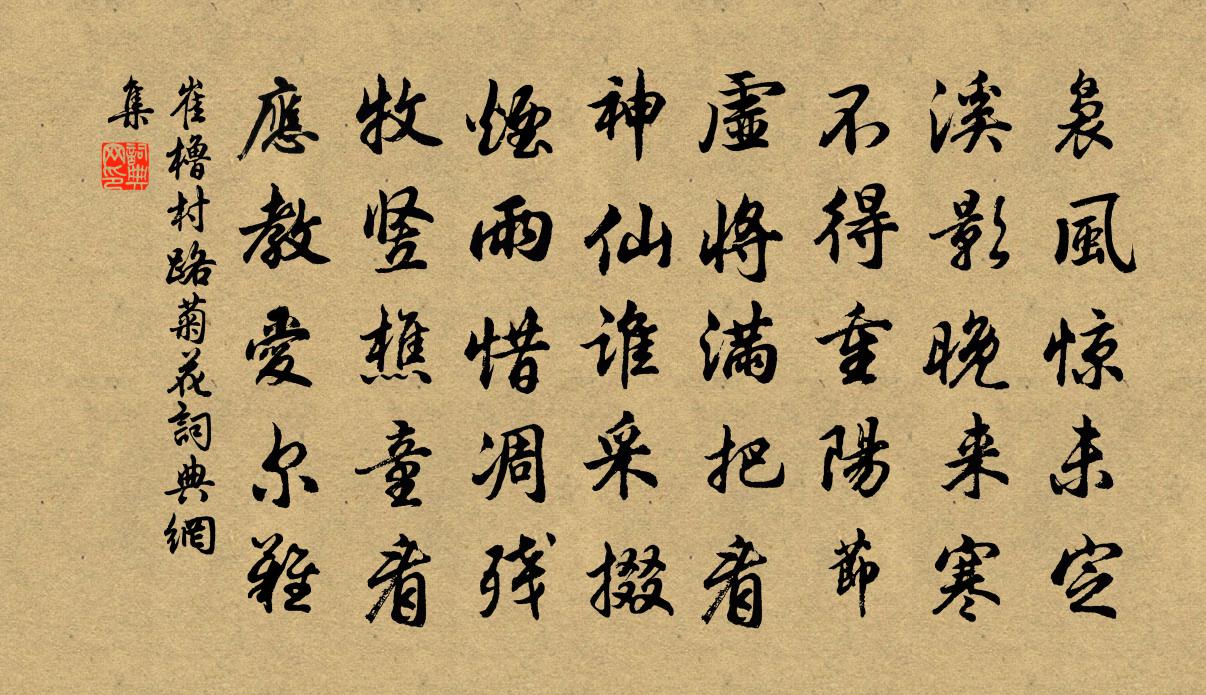 裊風惊未定
溪影晚来寒
不得重陽節
虛將滿把看
神仙誰采掇
煙雨惜凋残
牧豎樵童看
應教愛尔難
崔櫓村路菊花詞典網
集
詞典网印